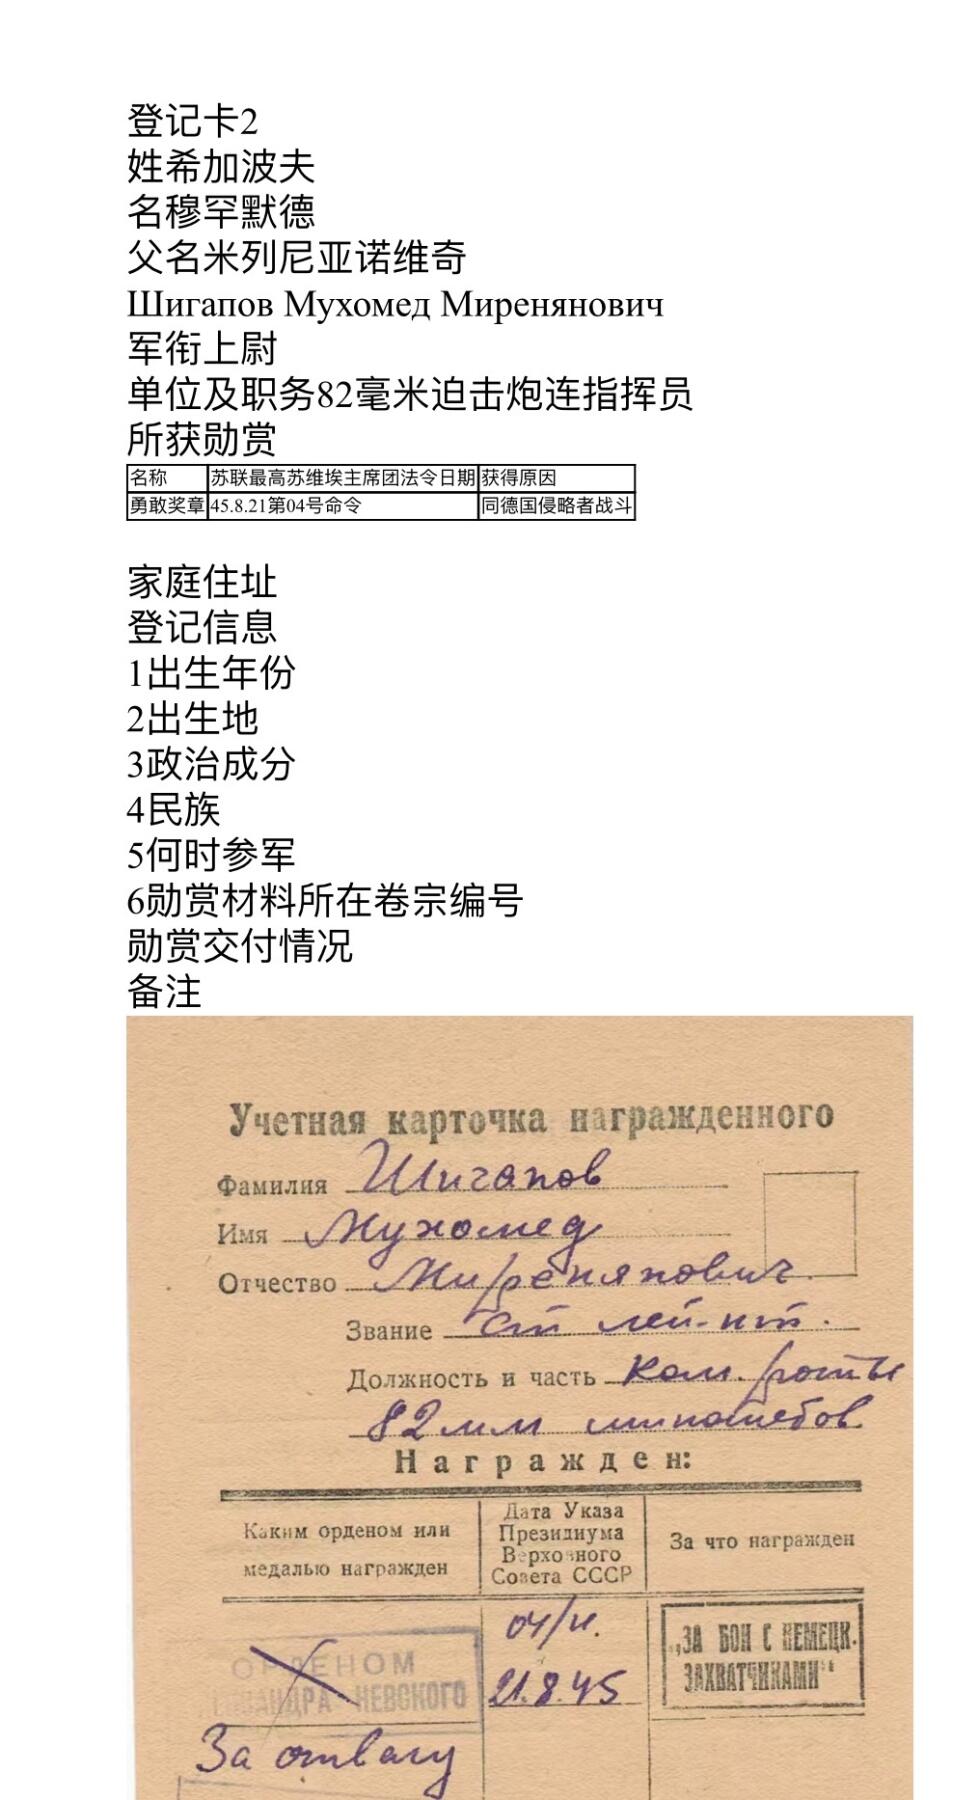 登记卡2
姓希加波夫
名穆罕默德
父名米列尼亚诺维奇
Шигапов Мухомед Миренянович
军衔上尉
单位及职务82毫米迫击炮连指挥员
所获勋赏
名称 苏联最高苏维埃主席团法令日期 获得原因
勇敢奖章 45.8.21第04号命令 同德国侵略者战斗
家庭住址
登记信息
1出生年份
2出生地
3政治成分
4民族
5何时参军
6勋赏材料所在卷宗编号
勋赏交付情况
备注
Учетная карточка награжденного
Фамилия Шигапов
Имя Мухомед
Отчество Миренянович
Звание ст лей-нт.
Должность и часть Ком. роты
82 мм минометов
Награжден:
Каким орденом или
медалью награжден
Дата Указа
Президиума
Верховного
Совета СССР
За что награжден
ОРДЕНОМ
АЛЕКСАНДРА НЕВСКОГО
За отвагу
04/н.
21.8.45
„ЗА БОИ С НЕМЕЦК.
ЗАХВАТЧИКАМИ"